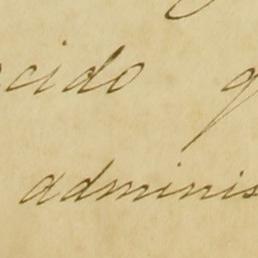 cido q
adminis